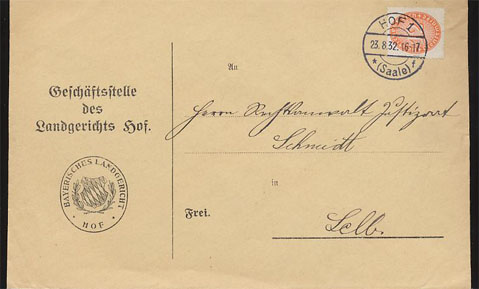 HOF 1
23.8.32. 16-17
* (Saale) *
An
Geschäftsstelle
des
Landgerichts Hof.
Herrn Rechtsanwalt Justizrat
Schmidt
in
BAYERISCHES LANDGERICHT
HOF
Frei.
Selb.